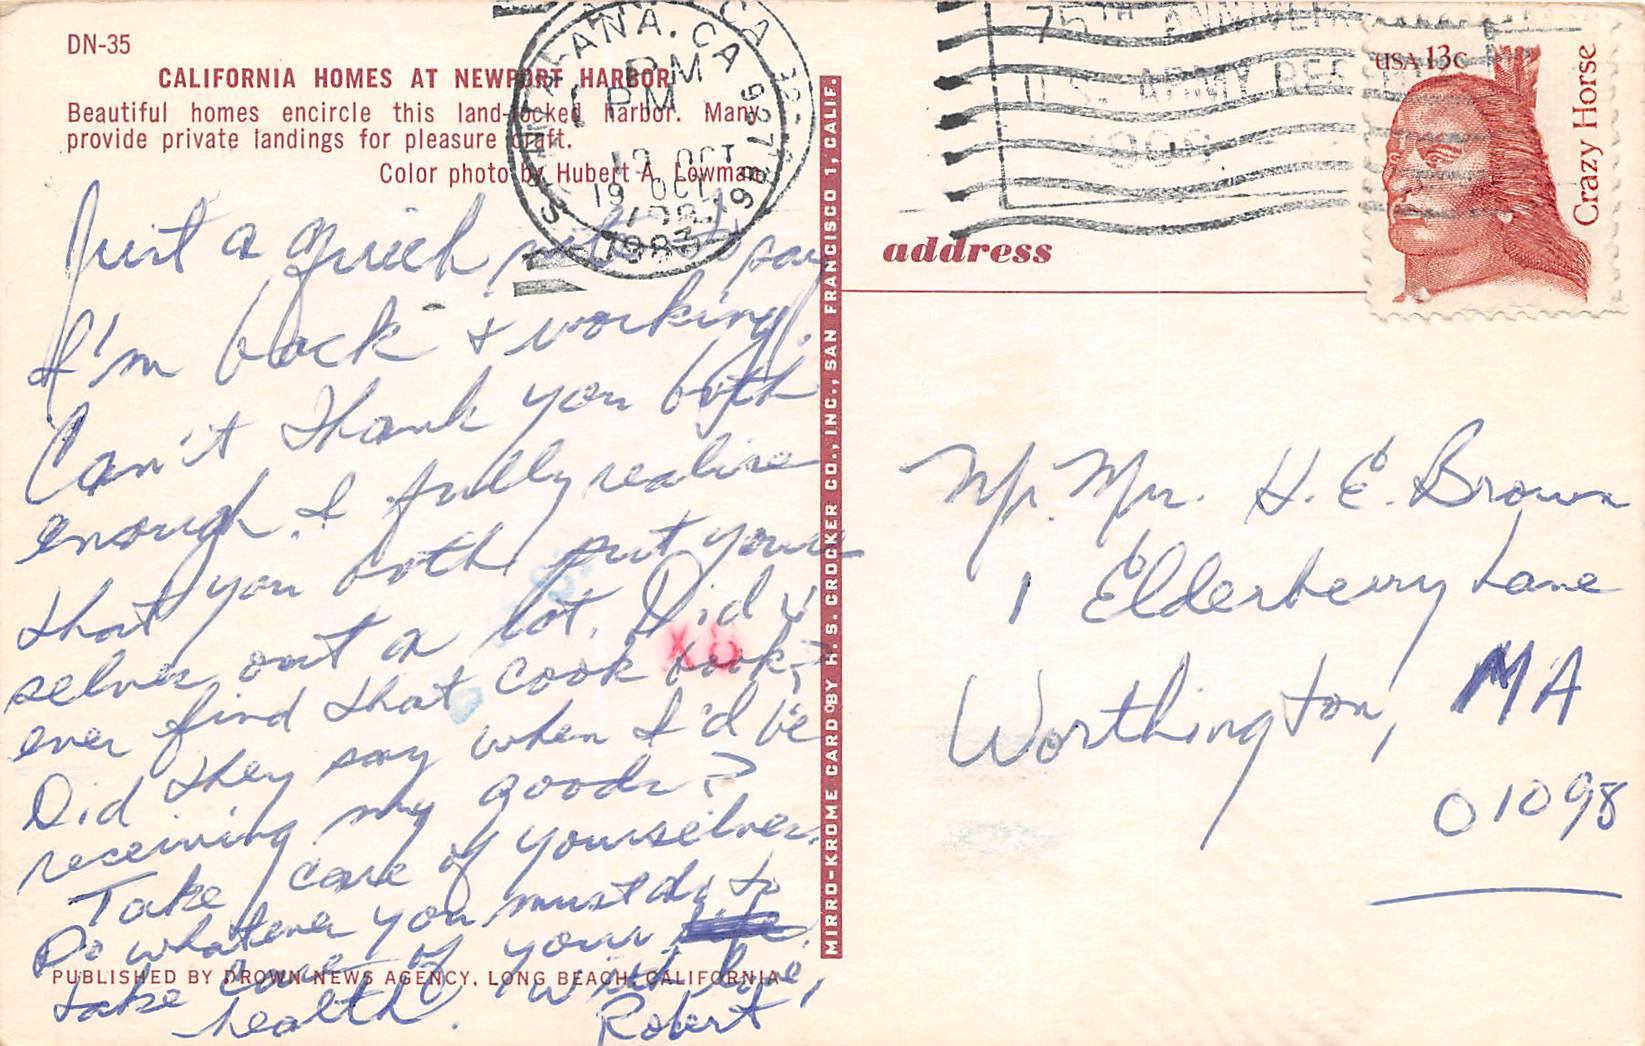 DN-35
CALIFORNIA HOMES AT NEWPORT HARBOR
Beautiful homes encircle this land-locked harbor. Many
provide private landings for pleasure craft.
Color photo by Hubert A. Lowman
Just a quick note to say
I'm back & working.
Can't thank you both
enough. I fully realize
that you both put your
selves out a lot. Did u
ever find that cook book?
Did they say when I'd be
receiving my goods?
Take care of yourselves.
Do whatever you must do to
take care of your
health. With love,
Robert
PUBLISHED BY DROWN NEWS AGENCY, LONG BEACH, CALIFORNIA
MIRRO-KROME CARD BY H. S. CROCKER CO., INC., SAN FRANCISCO 1, CALIF.
SANTA ANA, CA 927
PM
19 OCT
1983
75TH ANNIVER
U.S. ARMY RES
1908
USA 13c
Crazy Horse
address
Mr. Mrs. H. E. Brown
1 Elderberry Lane
Worthington, MA
01098